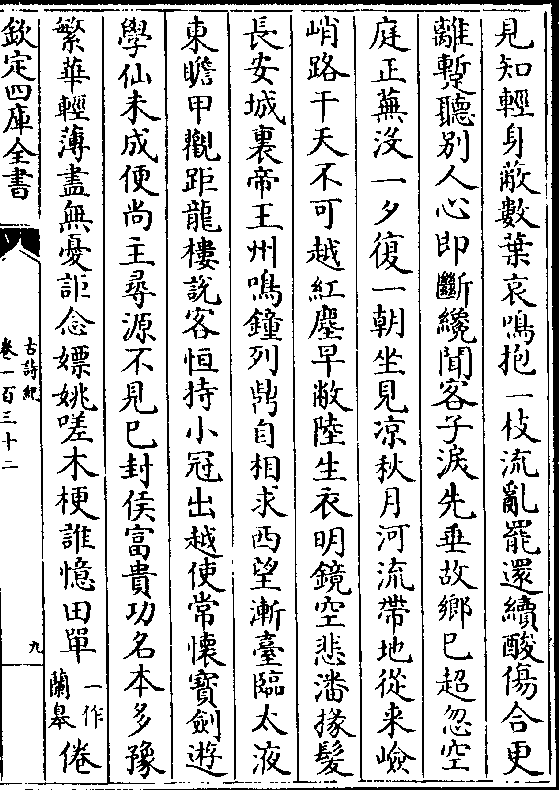 見知輕身蔽數葉哀鳴抱一枝流亂罷還續酸傷合更
離蹔聽别人心即斷纔聞客子淚先垂故鄉已超忽空
庭正蕪没一夕復一朝坐見凉秋月河流帶地從来嶮
峭路干天不可越紅塵早蔽陸生衣明鏡空悲潘掾髮
長安城裏帝王州鳴鐘列鼎自相求西望漸臺臨太液
東瞻甲觀距龍樓説客恒持小冠出越使常懷寶劍遊
學仙未成便尚主尋源不見已封侯富貴功名本多豫
繁華輕薄盡無憂詎念嫖姚嗟木梗誰憶田單一作蘭皋倦
欽定四庫全書
古詩紀
卷一百三十二
九